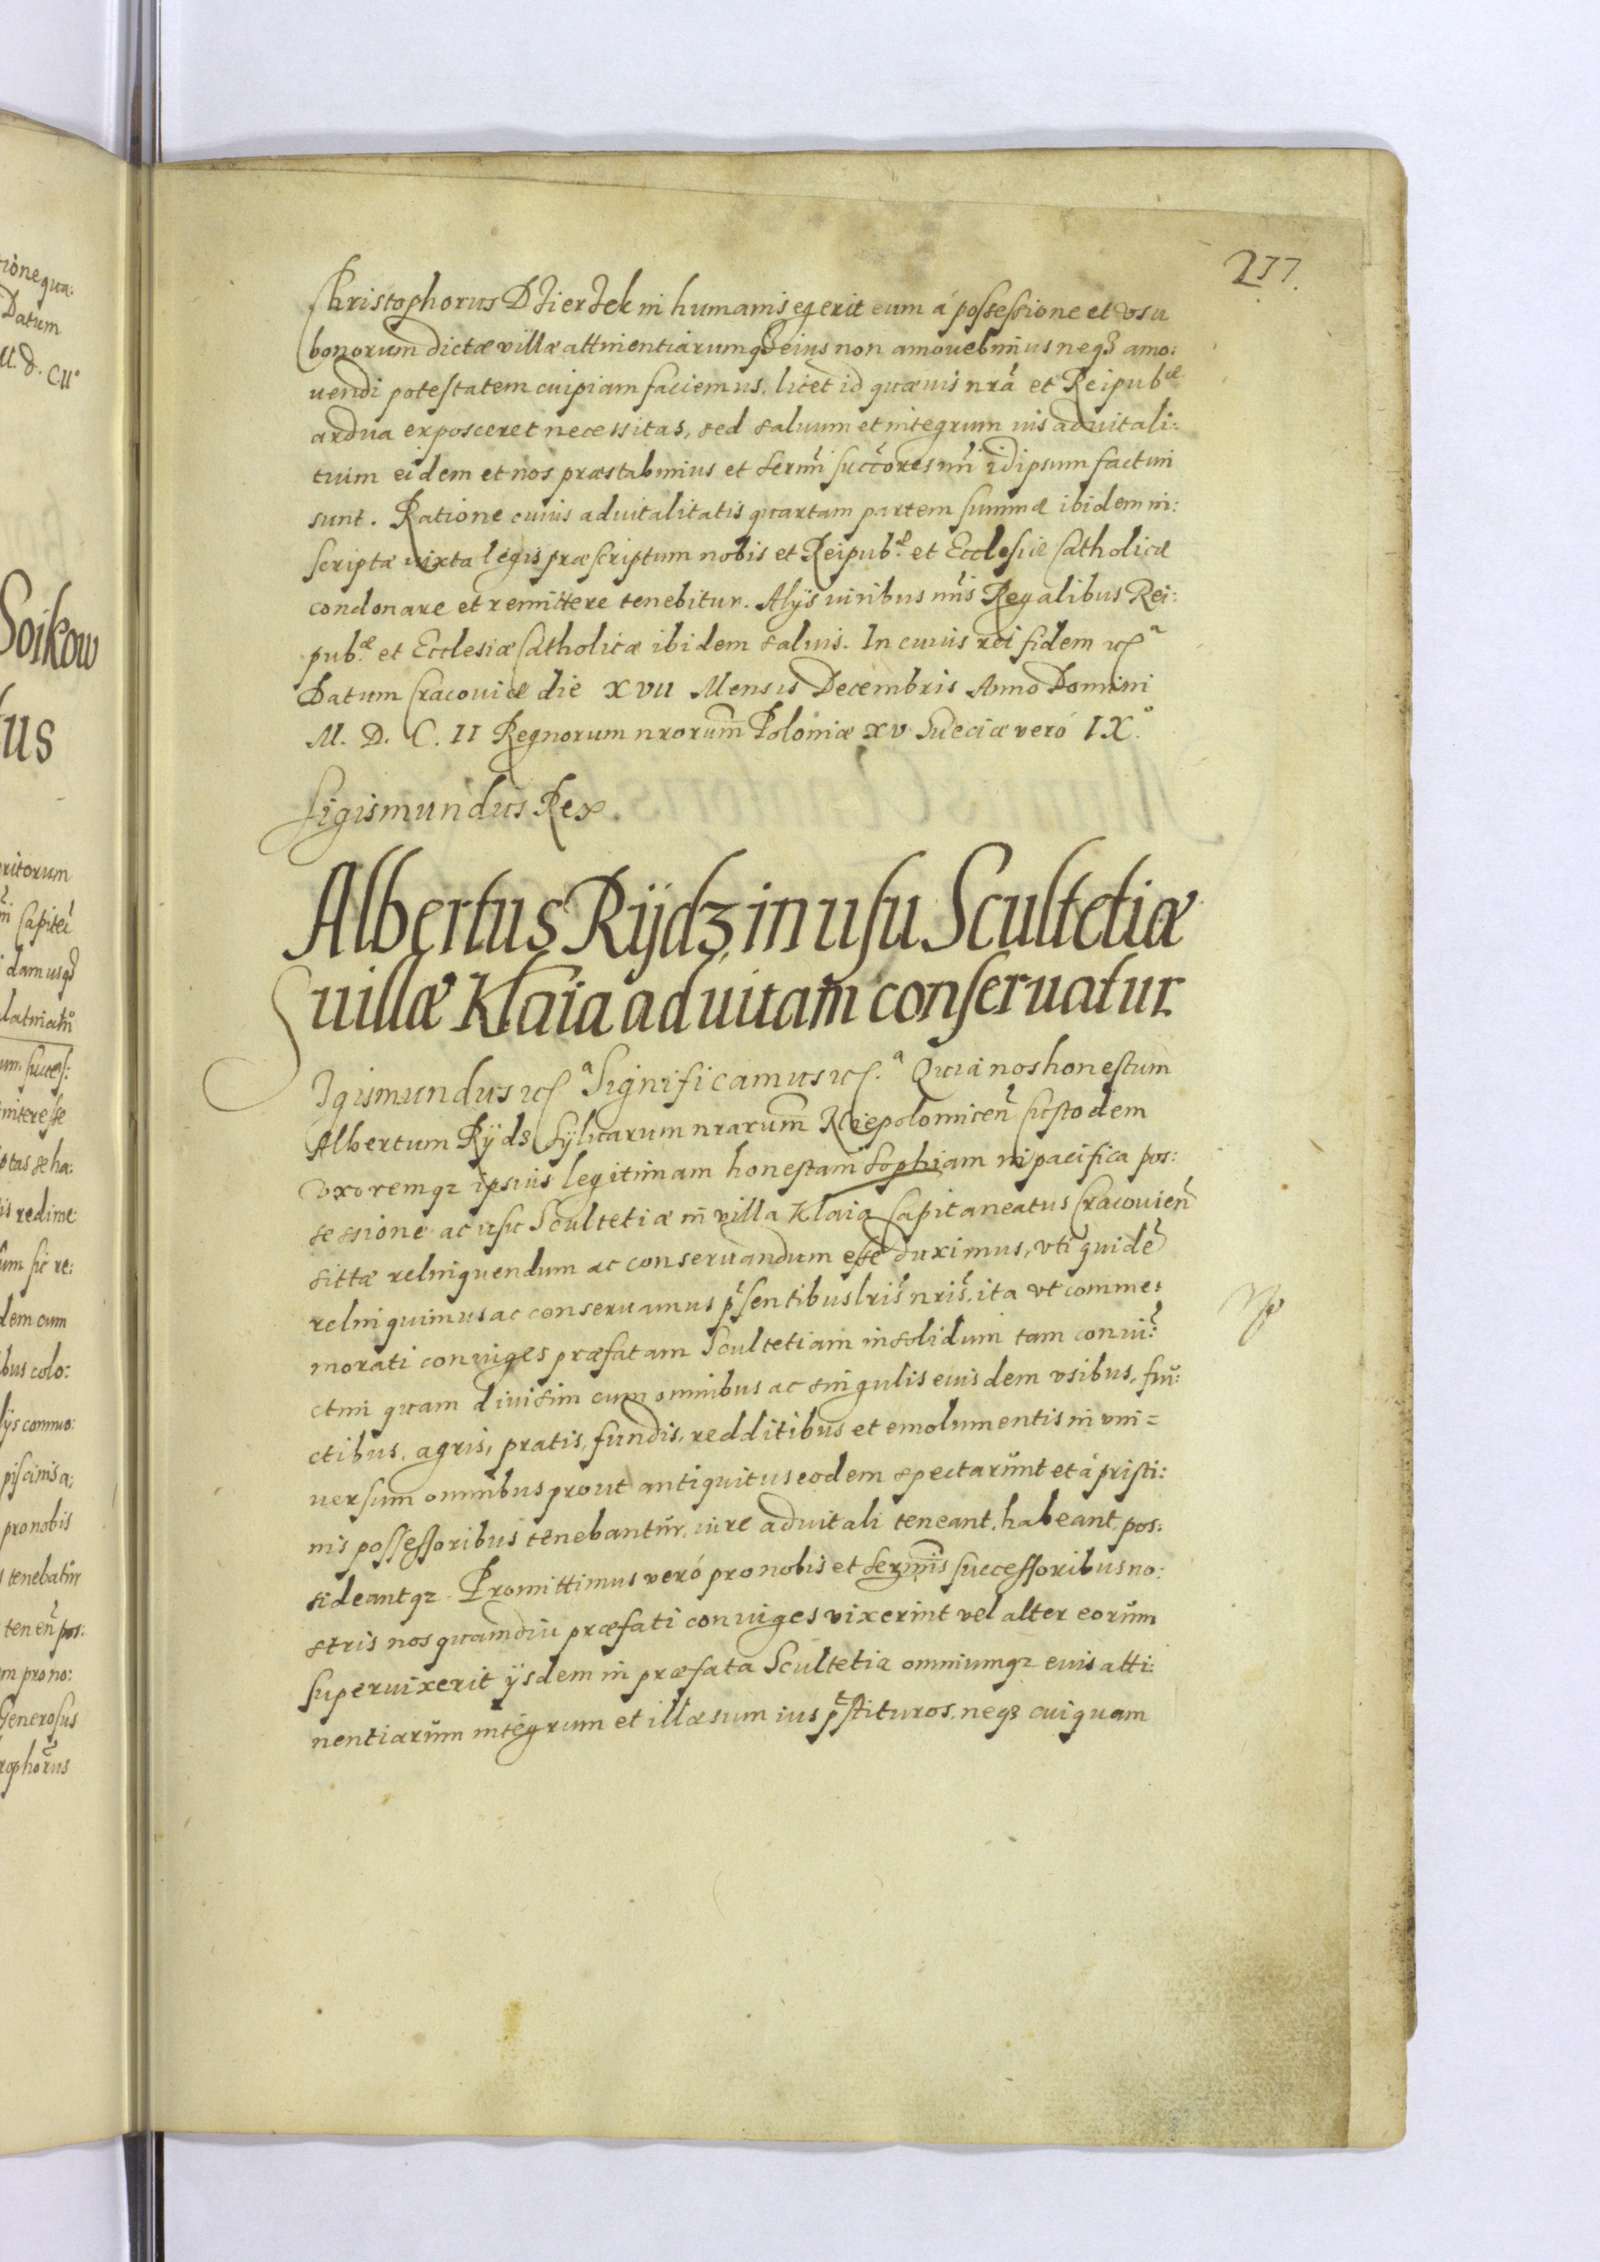 277.
Christophorus Dzierzek in humanis egerit eum á possessione et usu
bonorum dictæ villæ attinentiarumq3 eius non amovebimus neq3 amo:
vendi potestatem cuipiam faciemus, licet id quævis nrã et Reipub.æ
ardua exposceret necessitas, sed salvum et integrum ius advitali:
tium eidem et nos præstabimus et Sermĩ succ̃ores nrĩ idipsum facturi
sunt. Ratione cuius advitalitatis quartam partem summæ ibidem in:
scriptæ iuxta legis præscriptum nobis et Reipub.æ et Ecclesiæ Catholicæ
condonare et remittere tenebitur. Alÿs iuribus nrĩs Regalibus Rei:
pub.æ et Ecclesiæ Catholicæ ibidem salvis. In cuius rei fidem etc.a
Datum Cracoviæ die XVII Mensis Decembris Anno Domini
M. D. C. II Regnorum nrorum Poloniæ XV Sueciæ veró IX.o
Sigismundus Rex.
Albertus Rÿdz, in usu Scultetiæ
villæ Klaia ad vitam̃ conservatur.
Sigismundus etc.a Significamus etc.a Quia nos honestum
Albertum Rÿdz Sylvarum nrarum Niepolomicen̄ Custodem
uxoremq3 ipsius legitimam honestam Sophiam in pacifica pos:
sessione ac usu Scultetiæ in villa Klaia Capitaneatus Cracovien̄
sittæ relinquendum ac conservandum esse duximus, uti quidē
relinquimus ac conservamus pr̃sentibus lrĩs nrĩs, ita ut comme:
morati coniuges præfatam Scultetiam in solidum tam coniũ:
ctim quam divisim cum omnibus ac singulis eiusdem usibus, fru:
ctibus, agris, pratis, fundis, redditibus et emolumentis in uni=
versum omnibus prout antiquitus eodem spectarunt et á pristi:
nis possessoribus tenebantur, iure advitali teneant, habeant, pos:
sideantq3. Promittimus veró pro nobis et Sermĩs successoribus no:
stris nos quamdiu præfati coniuges vixerint vel alter eorum
supervixerit ÿsdem in præfata Scultetia omniumq3 eius atti:
nentiarum integrum et illæsum ius pr̃stituros, neq3 cuiquam